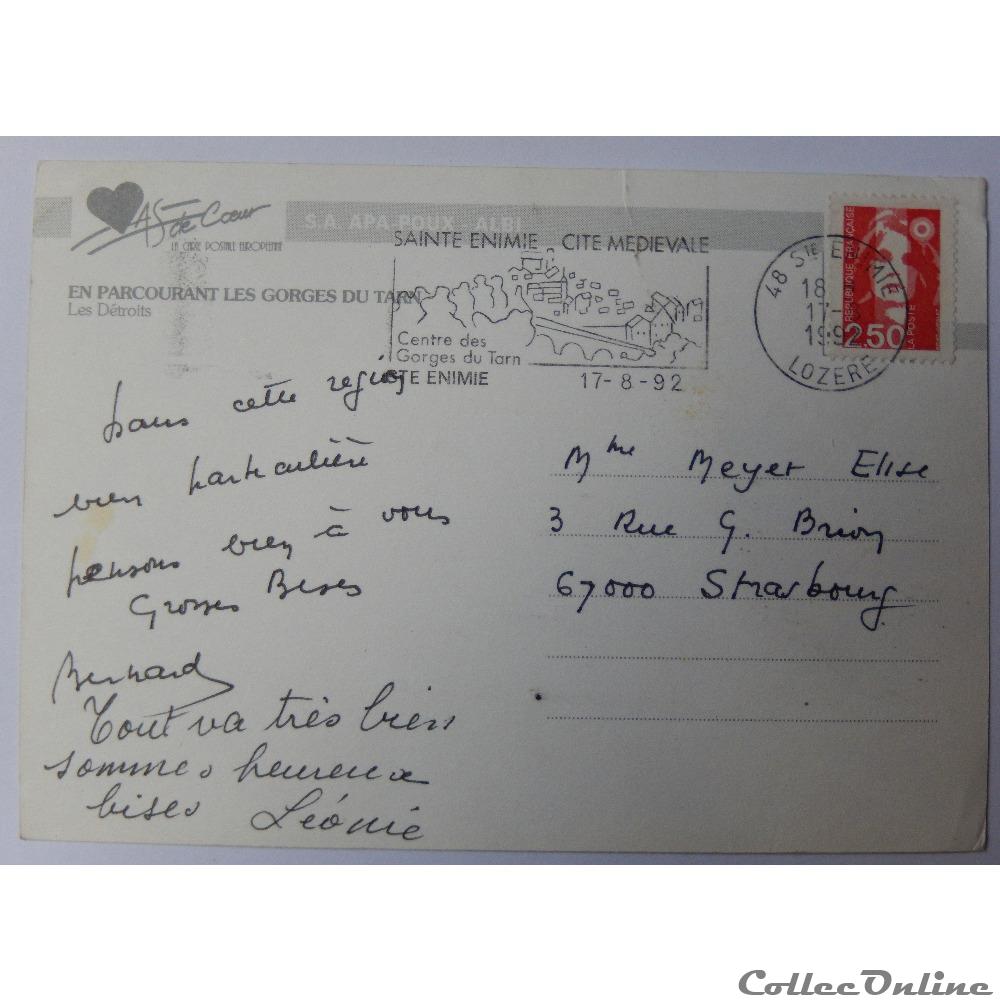 AS de Cœur
LA CARTE POSTALE EUROPEENNE
S.A. APA-POUX - ALBI
EN PARCOURANT LES GORGES DU TARN
Les Détroits
SAINTE ENIMIE CITE MEDIEVALE
Centre des
Gorges du Tarn
STE ENIMIE 17-8-92
48 STE ENIMIE
18
17-8
1992
LOZERE
REPUBLIQUE FRANÇAISE
2.50
LA POSTE
Dans cette region
bien particulière
pensons bien à vous
Grosses Bises
Bernard
Tout va très bien
sommes heureux
bises Léonie
Mme Meyer Elise
3 Rue G. Brion
67000 Strasbourg
CollecOnline